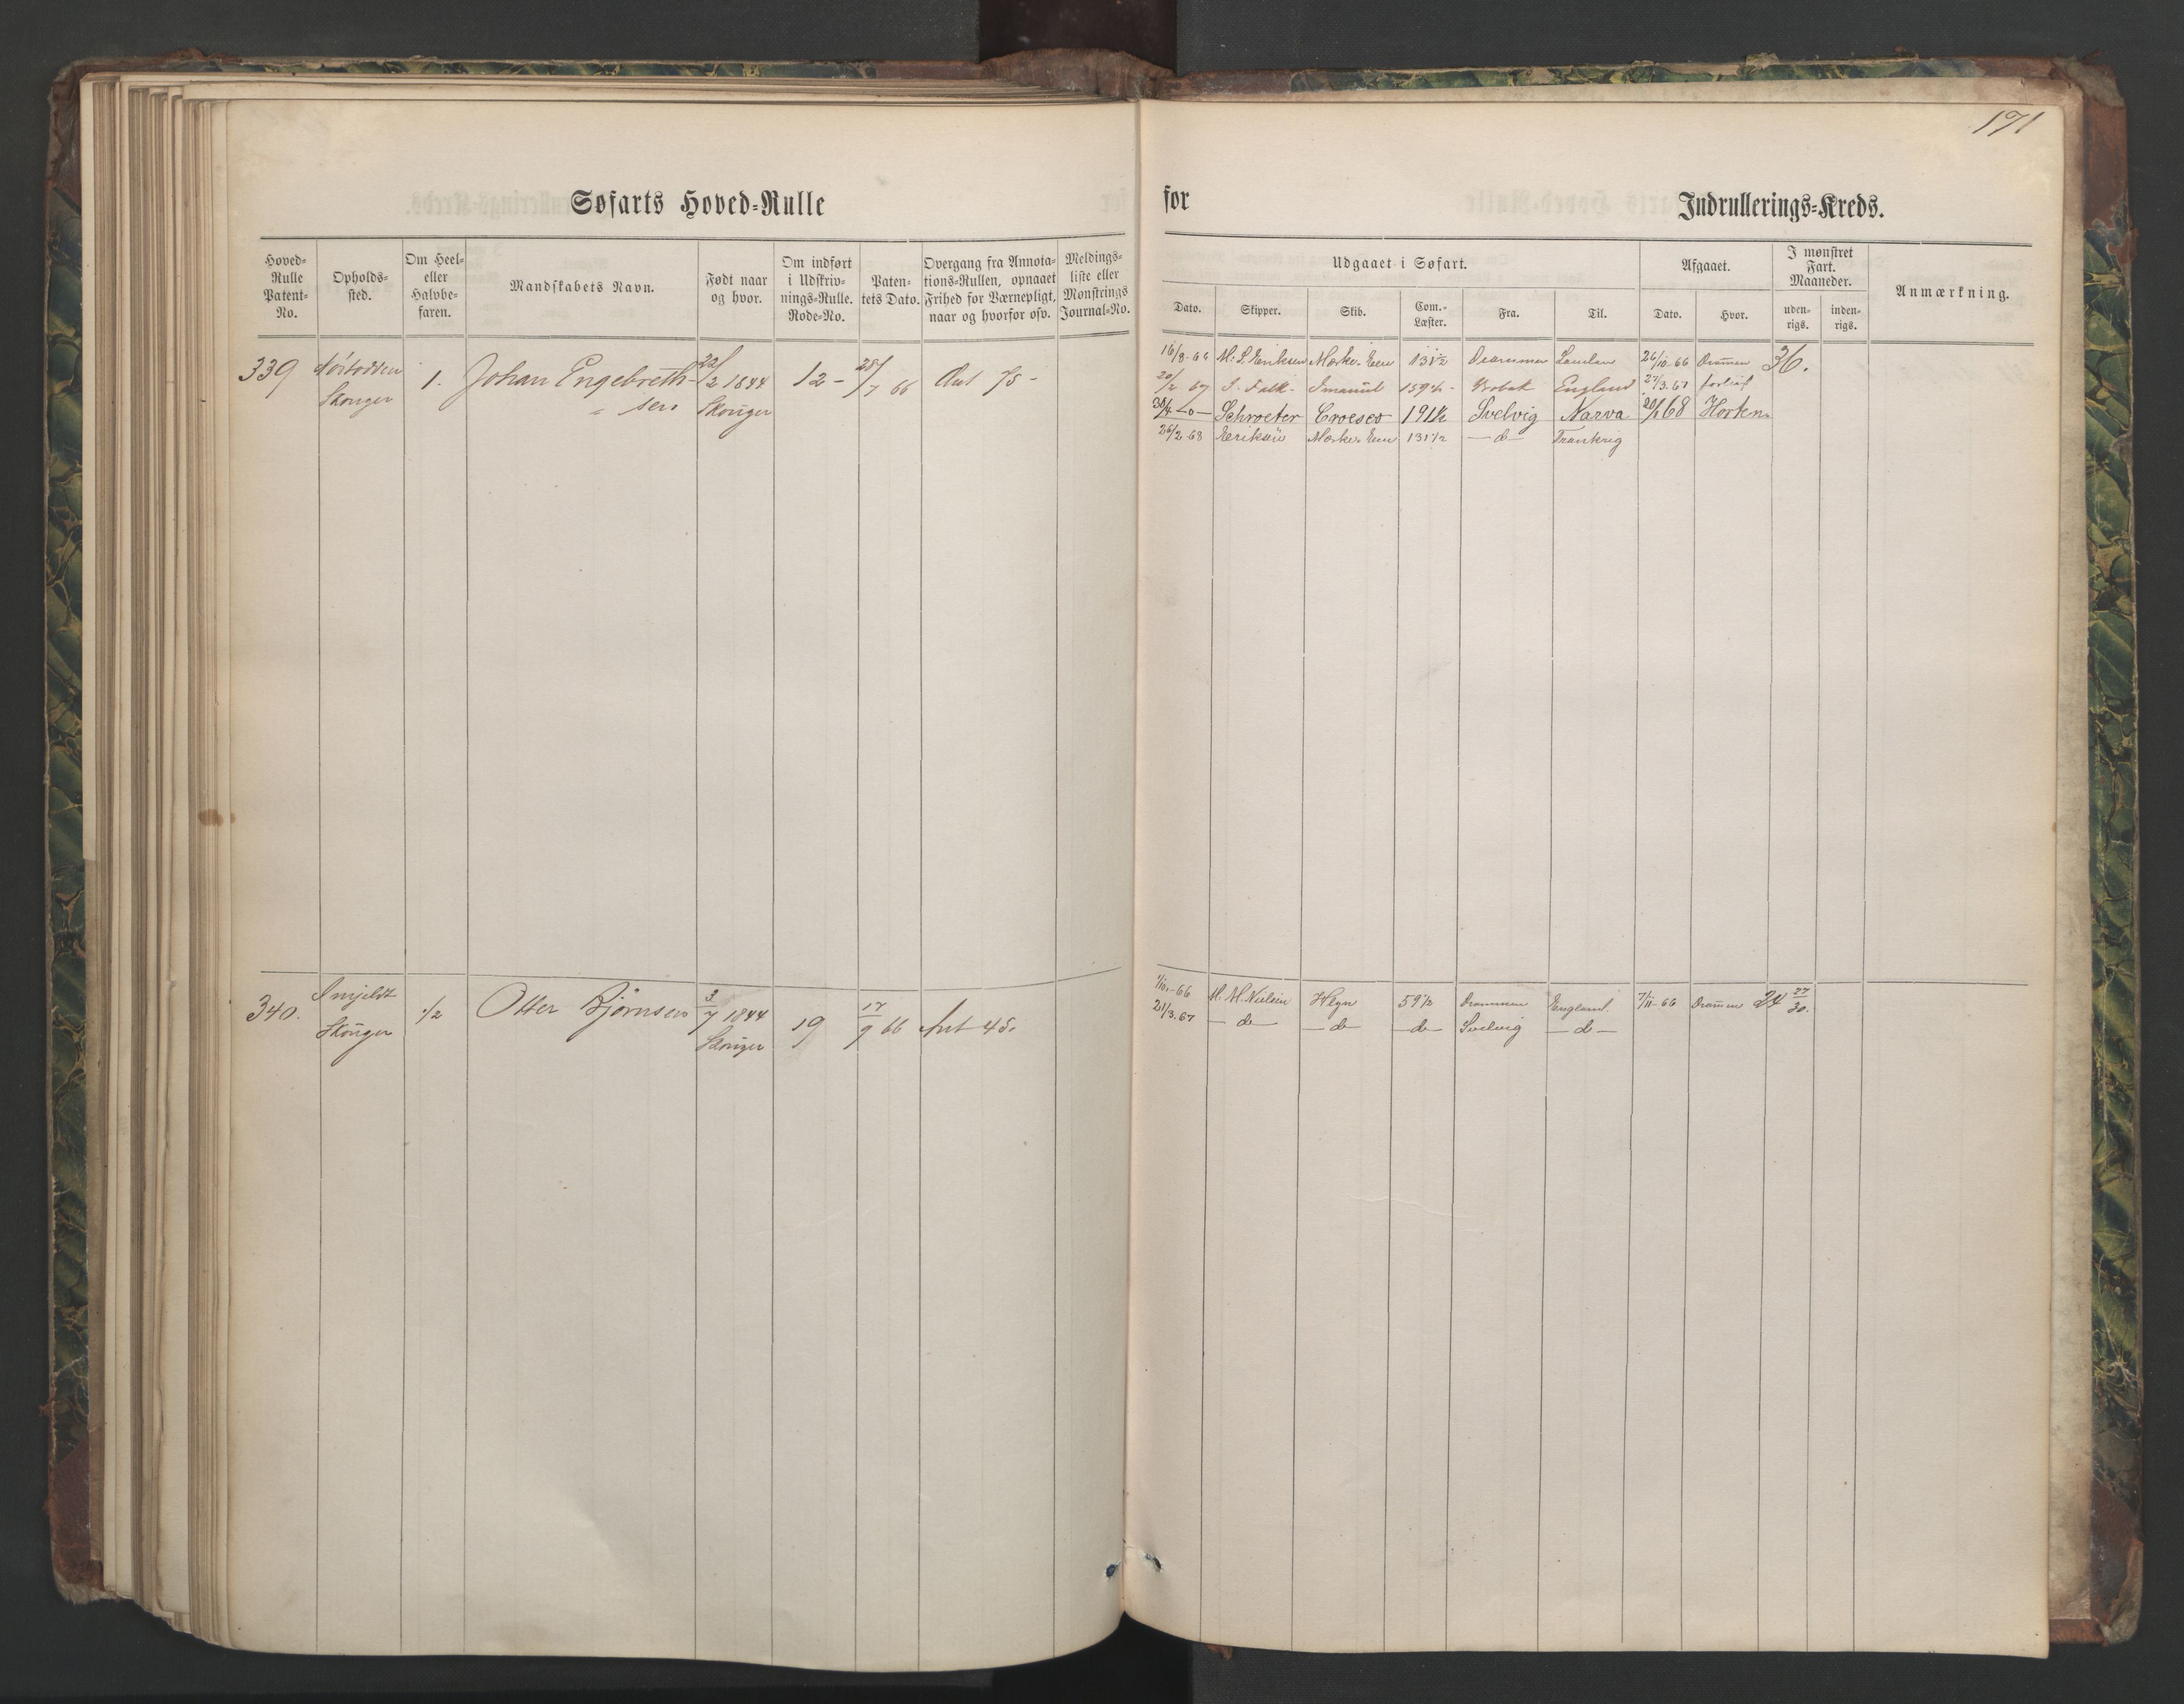 171
Søfarts Hoved-Rulle for Indrullerings-Kreds.
Hoved-Rulle Patent-No.
Opholds-sted.
Om Heel- eller Halvbe-faren.
Mandskabets Navn.
Født naar og hvor.
Om indført i Udskriv-nings-Rulle. Rode-No.
Paten-tets Dato.
Overgang fra Annota-tions-Rullen, opnaaet Frihed for Værnepligt, naar og hvorfor osv.
Meldings-liste eller Mønstrings Journal-No.
Udgaaet i Søfart.
Dato.
Skipper.
Skib.
Com.-Læster.
Fra.
Til.
Afgaaet.
Dato.
Hvor.
I mønstret Fart. Maaneder.
uden-rigs.
inden-rigs.
Anmærkning.
339 1. Johan Engebreth- 22/2 1844 12 - 28/7 66 Ant 75 -
Skouger sen Skouger
16/8-66 M. S. Eriksen 131½ Drammen London 26/10-66 Drammen 36.
20/2 67 J. Falk. Imanuel 159½ England 27/3.67 forliist
30/4 -o- Schroeter Croeses 191½ Svelvig Narva 68 Horten
26/2-68 Eriksen 131½ -d- Frankrig
340. 1/2 Otter Bjørnsen 3/7 1844 19 17/9 66 Ant 45.
Skouger Skouger
1/10.-66 M. M. Nielsen 59½ Drammen England. 7/11-66 Drammen 24 27/30.
21/3.67 -d- -d- -d- Svelvig -d-